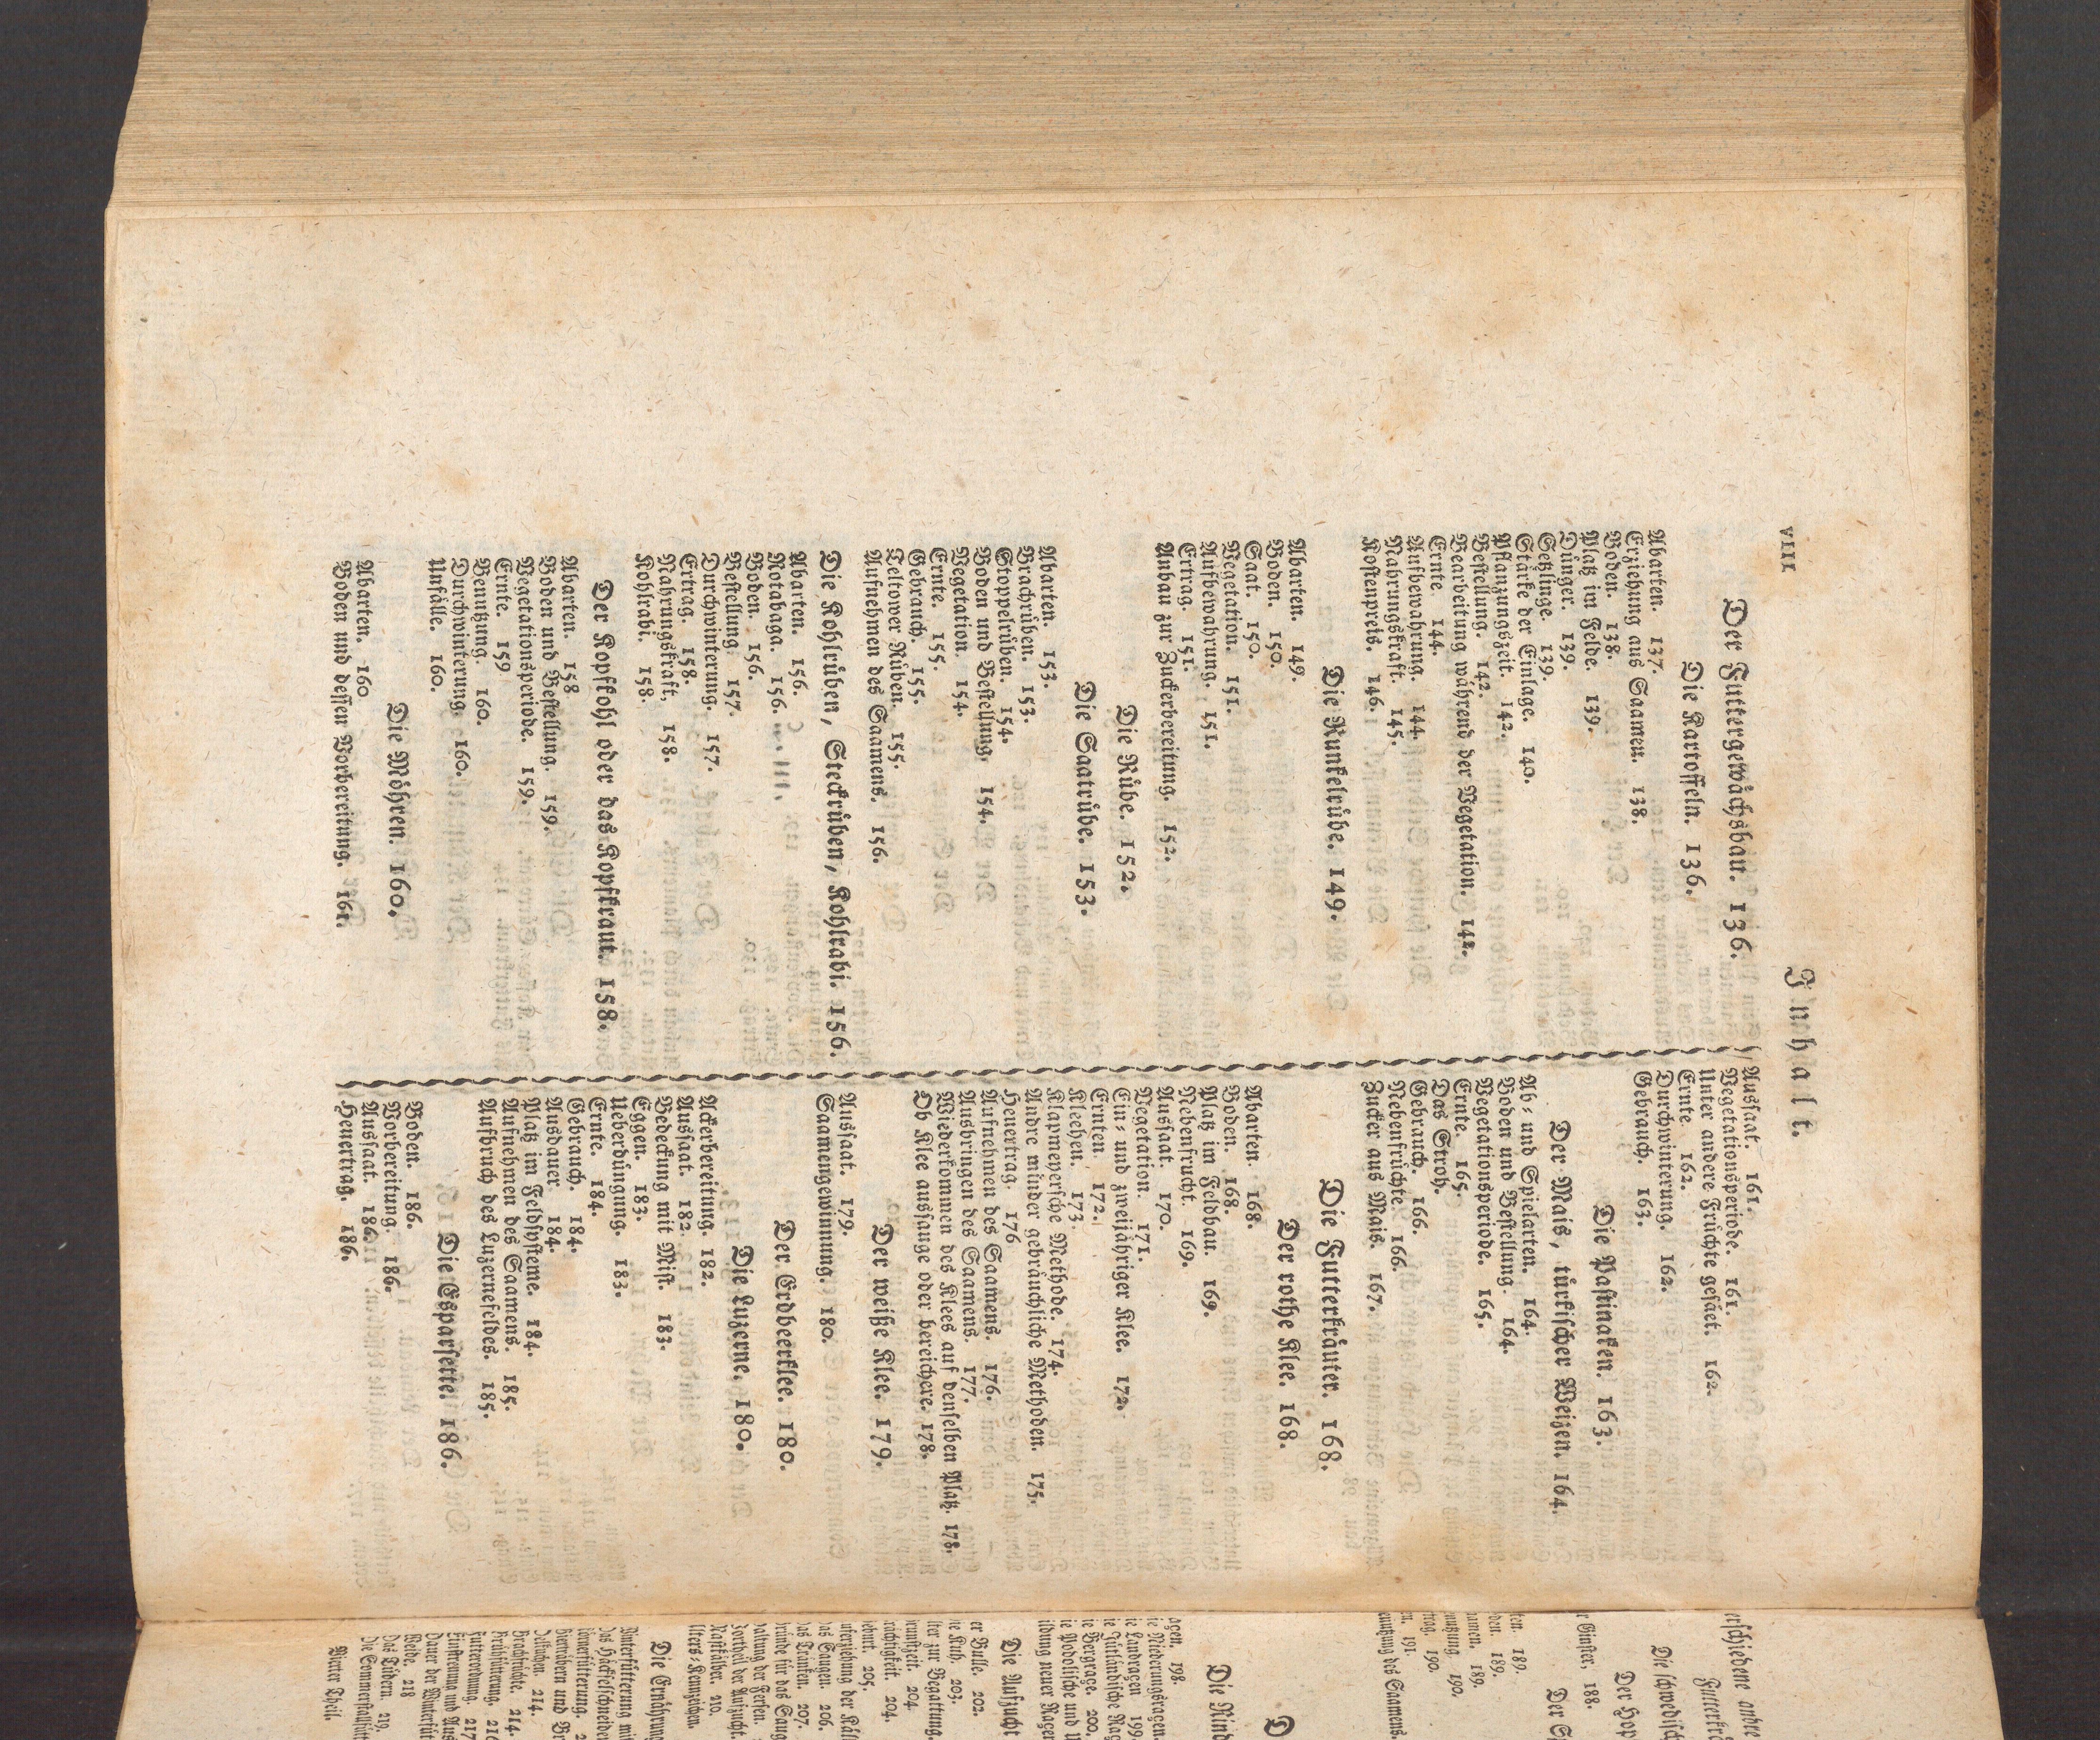 VIII
Inhalt.
Der Futtergewåchsbau. 136.
Die Kartoffeln. 136.
Abarten. 137.
Erziehung aus Saamen. 138.
Boden. 138.
Platz im Felde. 139.
Dünger. 139.
Setzlinge. 139.
Stärke der Einlage. 140.
Pflanzungszeit. 142.
Bestellung. 142.
Bearbeitung während der Vegetation. 142.
Ernte. 144.
Aufbewahrung. 144.
Nahrungskraft. 145.
Kostenpreis. 146.
Die Runkelrůbe. 149.
Abarten. 149.
Boden. 150.
Saat. 150.
Vegetation. 151.
Aufbewahrung. 151.
Ertrag. 151.
Anbau zur Zuckerbereitung. 152.
Die Růbe. 152.
Die Saatrůbe. 153.
Abarten. 153.
Brachrüben. 153.
Stoppelrüben. 154.
Boden und Bestellung. 154.
Vegetation. 154.
Ernte. 155.
Gebrauch. 155.
Teltower Rüben. 155.
Aufnehmen des Saamens. 156.
Die Kohlrůben, Steckrůben, Kohlrabi. 156.
Abarten. 156.
Rotabaga. 156.
Boden. 156.
Bestellung. 157.
Durchwinterung. 157.
Ertrag. 158.
Nahrungskraft. 158.
Kohlrabi. 158.
Der Kopfkohl oder das Kopfkraut. 158.
Abarten. 158
Boden und Bestellung. 159.
Vegetationsperiode. 159.
Ernte. 159
Benutzung. 160.
Durchwinterung. 160.
Unfälle. 160.
Die Möhren. 160.
Abarten. 160
Boden und dessen Vorbereitung. 161.
Aussaat. 161.
Vegetationsperiode. 161.
Unter andere Früchte gesäet. 162.
Ernte. 162.
Durchwinterung. 162.
Gebrauch. 163.
Die Pastinaken. 163.
Der Mais, türkischer Weizen. 164.
Ab- und Spielarten. 164.
Boden und Bestellung. 164.
Vegetationsperiode. 165.
Ernte. 165.
Das Stroh.
Gebrauch. 166.
Nebenfrüchte. 166.
Zucker aus Mais. 167.
Die Futterkråuter. 168.
Der rothe Klee. 168.
Abarten. 168.
Boden. 168.
Platz im Feldbau. 169.
Nebenfrucht. 169.
Aussaat. 170.
Vegetation. 171.
Ein- und zweijähriger Klee. 172.
Ernten. 172.
Kleeheu. 173.
Klapmeyersche Methode. 174.
Andre minder gebräuchliche Methoden. 175.
Heuertrag. 176
Aufnehmen des Saamens. 176.
Ausbringen des Saamens. 177.
Wiederkommen des Klees auf denselben Platz. 178.
Ob Klee aussauge oder bereichere. 178.
Der weiße Klee. 179.
Aussaat. 179.
Saamengewinnung. 180.
Der Erdbeerklee. 180.
Die Luzerne. 180.
Ackerbereitung. 182.
Aussaat. 182.
Bedeckung mit Mist. 183.
Eggen. 183.
Ueberdüngung. 183.
Ernte. 184.
Gebrauch. 184.
Ausdauer. 184.
Platz im Feldsysteme. 184.
Aufnehmen des Saamens. 185.
Aufbruch des Luzernefeldes. 185.
Die Esparsette. 186.
Boden. 186.
Vorbereitung. 186.
Aussaat. 186.
Heuertrag. 186.
andre
Die schwedisch
Der Hop
Ginster, 188.
189.
189.
189.
190.
190.
191.
des Saamens.
198.
199.
200.
Die Aufzucht
Bulle. 202.
Kuh. 203.
zur Begattung.
204.
204.
205.
206.
Tränken. 207.
der Fersen.
der Aufzucht.
210.
Die Ernährung
214.
Brachfrüchte. 214.
Futterordnung. 217
Weide. 218
Das Tüdern. 219.
Vierter Theil.